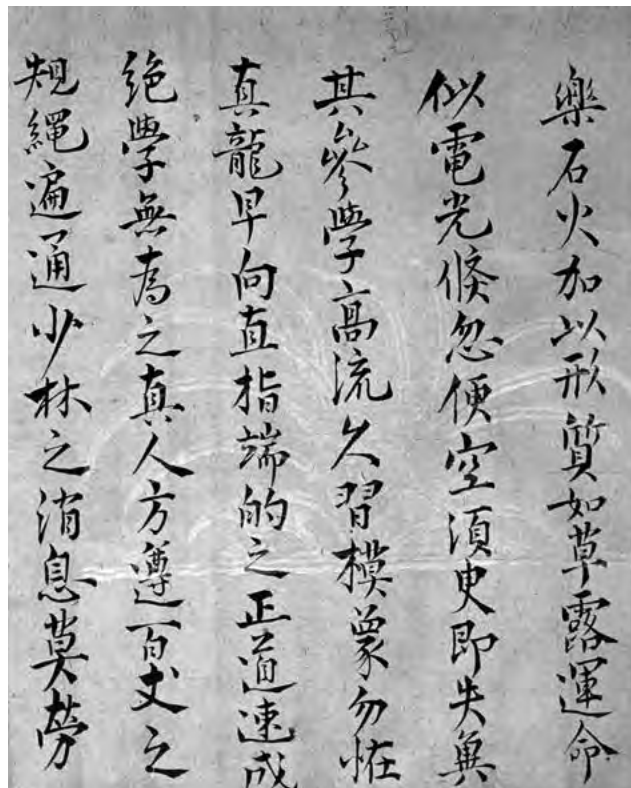 樂石火加以形質如草露運命
似電光倐忽便空須臾即失冀
其參學高流久習模象勿恠
真龍早向直指端的之正道速成
絶學無為之真人方遵百丈之
䂓繩遍通少林之消息莫勞